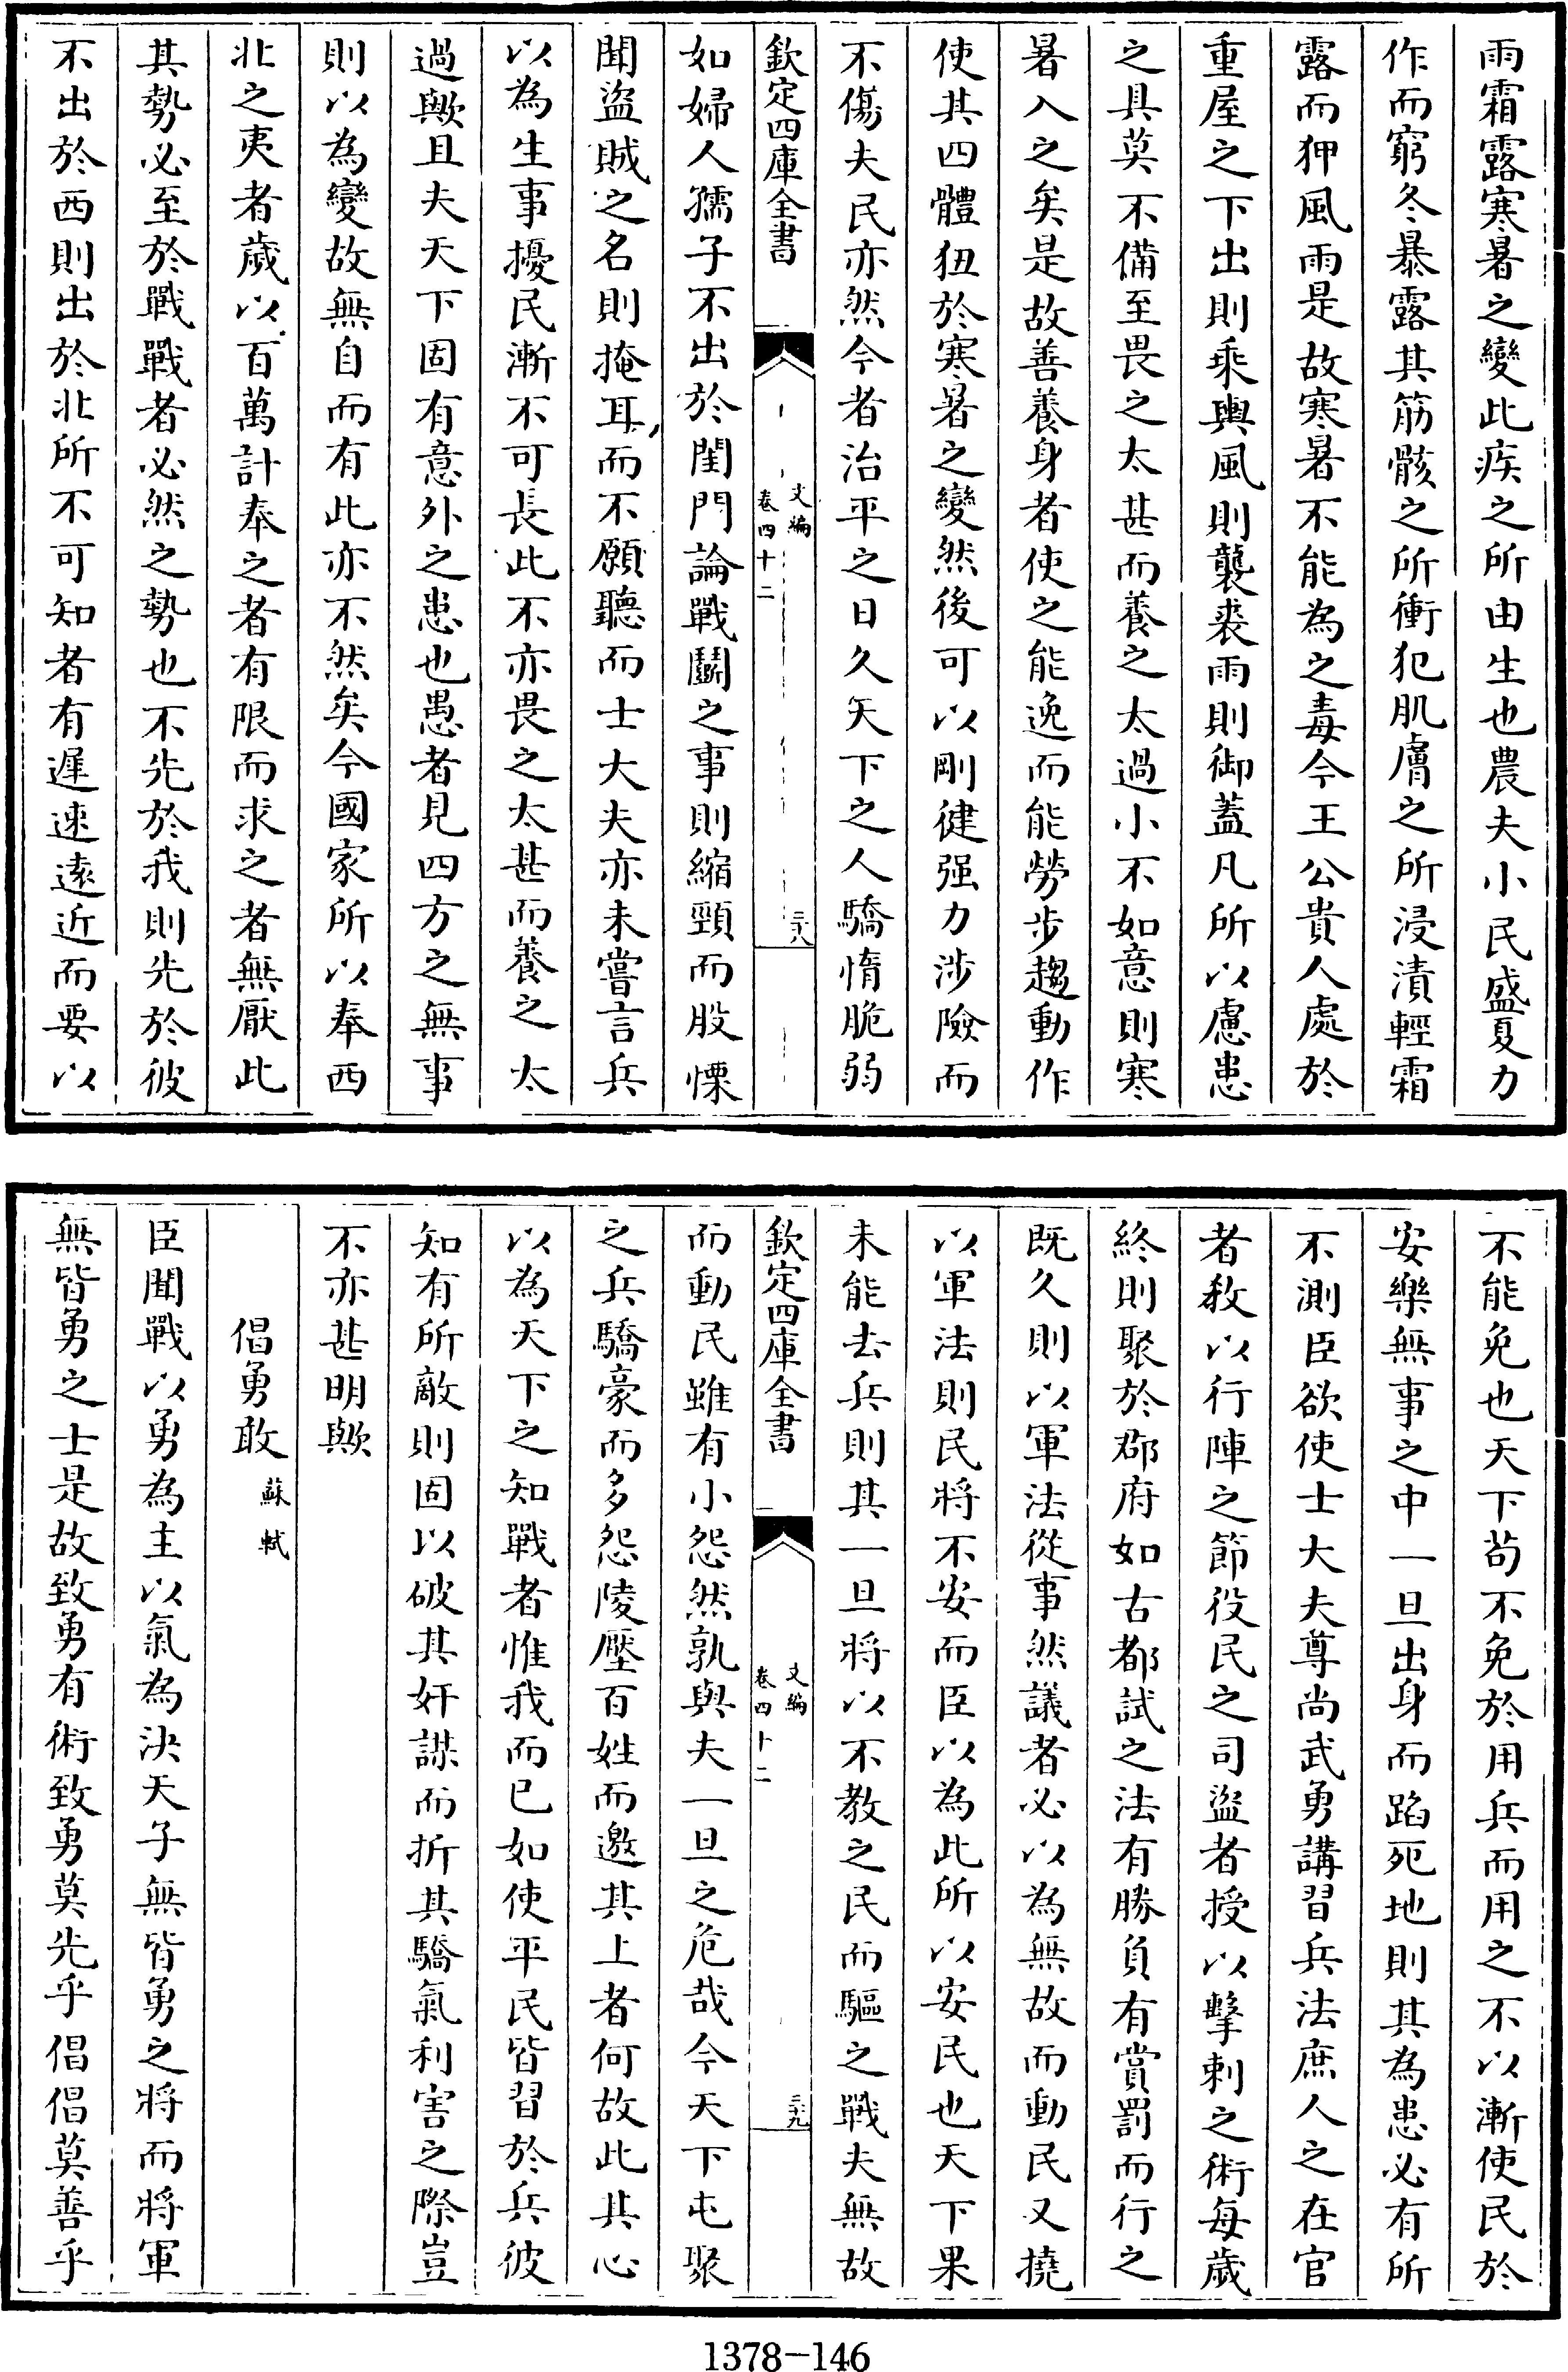 雨霜露寒暑之變此疾之所由生也農夫小民盛夏力
作而窮冬暴露其筋骸之所衝犯肌膚之所浸漬輕霜
露而狎風雨是故寒暑不能為之毒今王公貴人處於
重屋之下出則乘輿風則襲裘雨則御蓋凡所以慮患
之具莫不備至畏之太甚而養之太過小不如意則寒
暑入之矣是故善養身者使之能逸而能勞步趨動作
使其四體狃於寒暑之變然後可以剛健强力涉險而
不傷夫民亦然今者治平之日久天下之人驕惰脆弱
欽定四庫全書
文編
卷四十二
三十八
如婦人孺子不出於閨門論戰鬬之事則縮頸而股慄
聞盜賊之名則掩耳而不願聽而士大夫亦未嘗言兵
以為生事擾民漸不可長此不亦畏之太甚而養之太
過歟且夫天下固有意外之患也愚者見四方之無事
則以為變故無自而有此亦不然矣今國家所以奉西
北之夷者歲以百萬計奉之者有限而求之者無厭此
其勢必至於戰戰者必然之勢也不先於我則先於彼
不出於西則出於北所不可知者有遲速遠近而要以
不能免也天下苟不免於用兵而用之不以漸使民於
安樂無事之中一旦出身而蹈死地則其為患必有所
不測臣欲使士大夫尊尚武勇講習兵法庶人之在官
者教以行陣之節役民之司盜者授以擊刺之術每歲
終則聚於郡府如古都試之法有勝負有賞罰而行之
既久則以軍法從事然議者必以為無故而動民又撓
以軍法則民將不安而臣以為此所以安民也天下果
未能去兵則其一旦將以不教之民而驅之戰夫無故
欽定四庫全書
文編
卷四十二
三十九
而動民雖有小怨然孰與夫一旦之危哉今天下屯聚
之兵驕豪而多怨陵壓百姓而邀其上者何故此其心
以為天下之知戰者惟我而已如使平民皆習於兵彼
知有所敵則固以破其奸謀而折其驕氣利害之際豈
不亦甚明歟
倡勇敢 蘇軾
臣聞戰以勇為主以氣為決天子無皆勇之將而將軍
無皆勇之士是故致勇有術致勇莫先乎倡倡莫善乎
1378-146